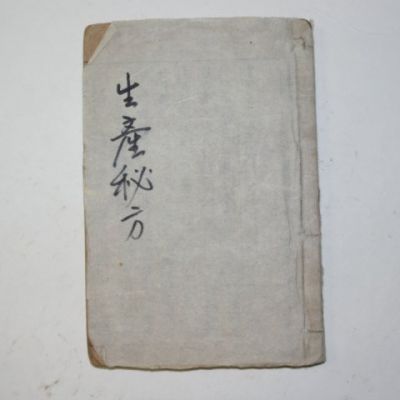 生產秘方